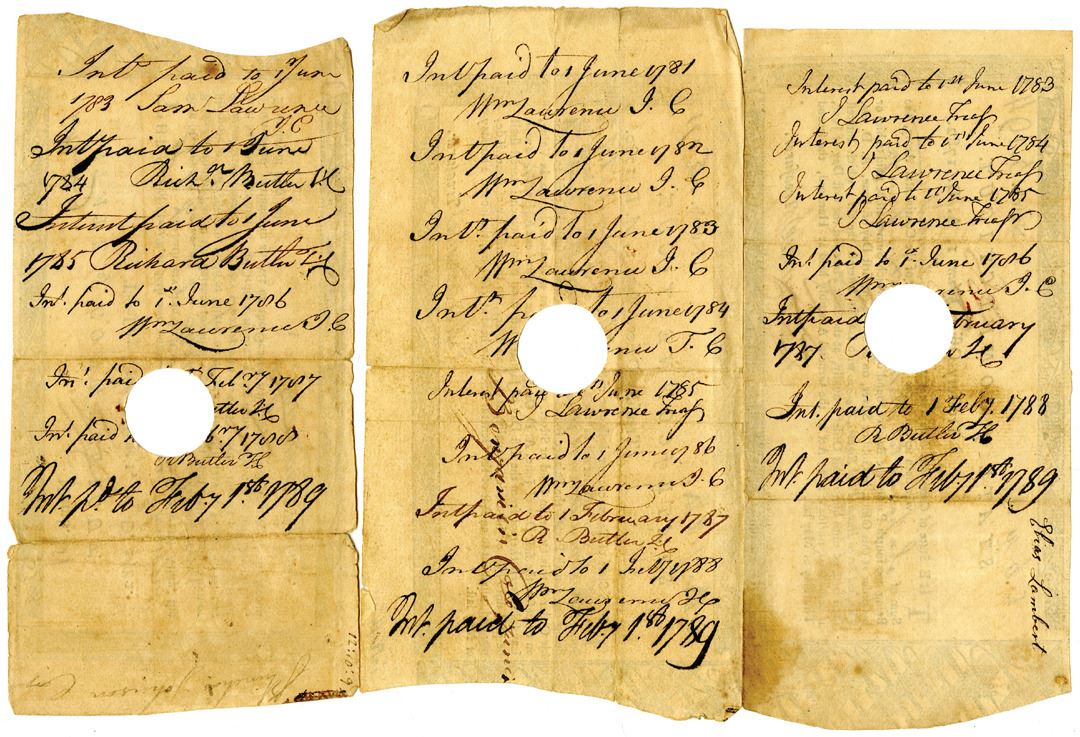 Int paid to 1 June
1783 Sam Lawrence
J. C
Int paid to 1 June
1784 Rich.d Butler
Interest paid to 1 June
1785 Richard Butler
Int. paid to 1st. June 1786
Wm Lawrence J. C
Int. paid Feb.ry 1787
Butler
Int. paid 1788
R Butler
Int. pd. to Feby 1st 1789
12:0:9
Johnson
Int paid to 1 June 1781
Wm Lawrence J. C
Int paid to 1 June 1782
Wm Lawrence J. C
Int. paid to 1 June 1783
Wm Lawrence J. C
Int. to 1 June 1784
J. C
Interest June 1785
J Lawrence Treasr
Int paid to 1 June 1786
Wm Lawrence J. C
Int paid to 1 February 1787
R Butler
Int paid to 1 Feby 1788
Wm Lawrence
Int. paid to Feby 1st. 1789
Benjamin
Interest paid to 1st June 1783
J Lawrence Treasr
Interest paid to 1st June 1784
J Lawrence Treasr
Interest paid to 1st June 1785
J Lawrence Treasr
Int. paid to 1st. June 1786
Wm J. C
Int paid
1787.
Int. paid to 1 Feby. 1788
R Butler
Int. paid to Feby 1st. 1789
Elias Lambert